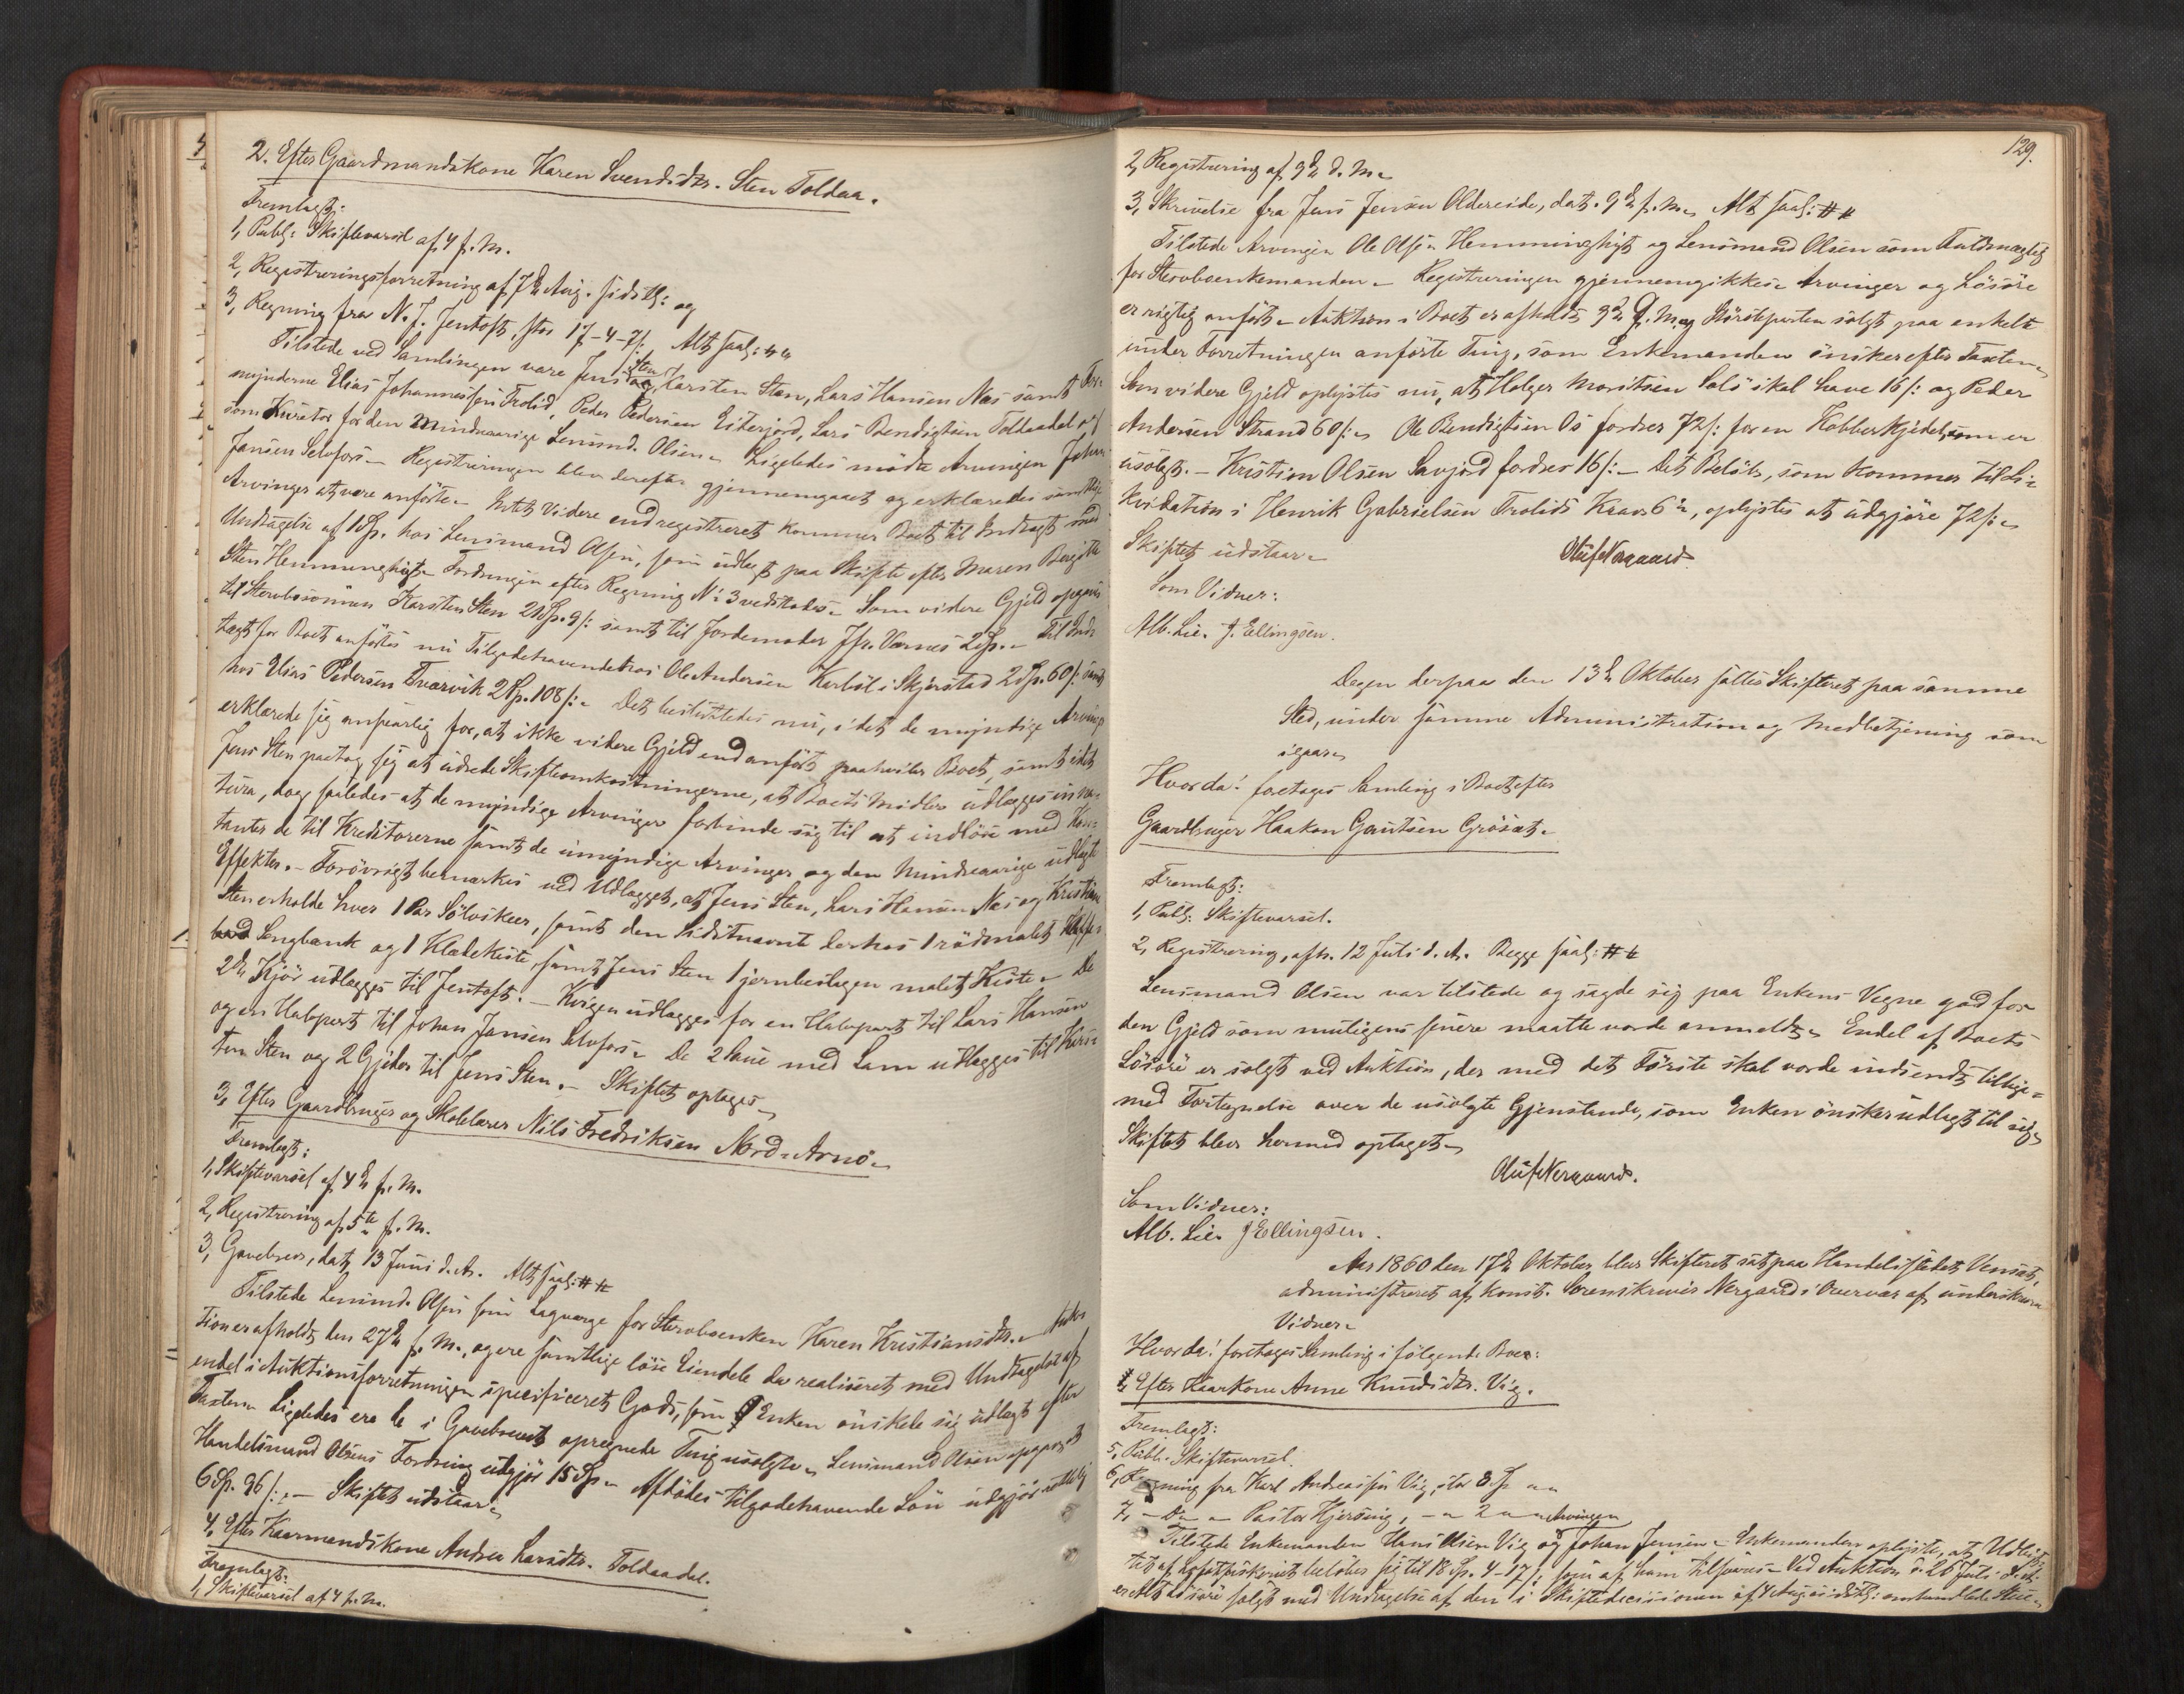 2. Efter Gaardmandskone Karen Svendsdtr. Sten Toldaa.
Fremlagt:
1, Publ: Skiftevarsel af 4 f. M.
2, Registreringsforretning af 7de Aug. sidstl: og
3, Regning fra N. J. Jentoft, stor 17-4-7/: Alts saal:
Tilstede ved Samlingen vare Jens Sten og Karsten Sten, Lars Hansen Næs samt For-
mynderne Elias Johannessen Trolid, Peder Pedersen Eiterjord, Lars Bendigtsen Toldaadal og
som Kurator for den Mindreaarige Lensmd. Olsen. Ligeledes mødte Arvingen Johan
Jansen Selvfors. Registreringen blev derefter gjennemgaaet og erklæredes samtlige
Arvinger at være anførte. Intet Videre end registreret kommer Boet til Indtægt med
Undtagelse af 10 Sp. hos Lensmand Olsen, som udlagt paa Skifte efter Maren Bergitte
Sten Hemminghytt. Fordringen efter Regning No 3 vedtoges. Som videre Gjeld opgaves
til Stervbosønnen Karsten Sten 2 Sp. 9/: samt til Jordemoder Jfr. Værnes 2 Sp. Til Ind-
tægt for Boet anførtes nu Tilgodehavende hos Ole Andersen Karbøl i Skjerstad 2 Sp. 60/: samt
hos Elias Pedersen Tværvik 2 Sp. 108/:. Det besluttedes nu, idet de myndige Arvinger
erklærede sig ansvarlig for, at ikke videre Gjeld end anført paahviler Boet, samt idet
Jens Sten paatog sig at udrede Skifteomkostningerne, at Boets Midler udlægges in na-
tura, dog saaledes at de myndige Arvinger forbinde sig til at indløse med Kon-
tanter de til Kreditorerne samt de umyndige Arvinger og den Mindreaarige udlagte
Effekter. Forøvrigt bemærkes ved Udlægget, at Jens Sten, Lars Hansen Næs og Kristian
Sten erholde hver 1 Par Sølvskeer, samt den Sidstnævnte derhos 1 rødmalet
Sengbænk og 1 Klædekiste, samt Jens Sten 1 jernbeslagen malet Kiste. De
2de Kjør udlægges til Jentoft. Kvigen udlægges for en Halvpart til Lars Hansen
og en Halvpart til Johan Jansen Selvfors. De 2 Saue med Lam udlægges til Kars-
ten Sten og 2 Gjeder til Jens Sten. Skiftet optages
3, Efter Gaardbruger og Skolelærer Nils Fredriksen Nord-Arnø.
Fremlagt:
1, Skiftevarsel af 4de f. M.
2, Registrering af 5te f. M.
3, Gavebrev, dat. 13 Juni d. A. Alts saal:
Tilstede Lensmd. Olsen som Lagværge for Stervboenken Karen Kristiansdtr. Auk-
tion er afholdt den 27de f. M., og ere samtlige løse Eiendele da realiseret med Undtagelse af
endel i Auktionsforretningen specificeret Gods, som Enken ønskede sig udlagt efter
Taxten. Ligeledes ere de i Gavebrevet opregnede Ting usolgte. Lensmand Olsen opgav at
Handelsmand Olsens Fordring udgjør 15 Sp. Afdødes tilgodehavende Løn udgjør
6 Sp. 96/:. Skiftet udstaar.
4, Efter Kaarmandskone Andrea Larsdtr. Toldaadal.
Fremlagt:
1, Skiftevarsel af 4 f. M.
129.
2, Registrering af 9de d. M.
3, Skrivelse fra Jens Jensen Oldereide, dat. 9de f. M. Alt saal:
Tilstede Arvingen Ole Olsen Hemminghyt og Lensmand Olsen som Fuldmægtig
for Stervboenkemanden. Registreringen gjennemgikkes. Arvinger og Løsøre
er rigtig anført. Auktion i Boet er afholdt 9de d. M. og Størsteparten solgt paa enkelte
under Forretningen anførte Ting, som Enkemanden ønsker efter Taxten.
Som videre Gjeld oplystes nu, at Holger Moritsen Solø skal have 16/: og Peder
Andersen Strand 60/:. Ole Bendigtsen Os fordrer 72/: for en Kobberkjedel, som er
usolgt. Kristian Olsen Savjord fordrer 16/:. Det Beløb, som kommer til Li-
kvidation i Henrik Gabrielsen Trolids Krav, oplystes at udgjøre 72/:
Skiftet udstaar.
Oluf Nergaard.
Som Vidner:
Alb. Lie. J. Ellingsen.
Dagen derpaa den 13de Oktober sattes Skifteret paa samme
Sted, under samme Administration og Medbetjening som
igaar.
Hvorda! foretoges Samling i Boet efter
Gaardbruger Haakon Gautsen Grøsæt.
Fremlagt:
1, Publ: Skiftevarsel.
2, Registrering, afh. 12 Juli d. A. Begge saal:
Lensmand Olsen var tilstede og sagde sig paa Enkens Vegne god for
den Gjeld som muligens senere maatte vorde anmeldt. Endel af Boets
Løsøre er solgt ved Auktion, der med det Første skal vorde indsendt tillige-
med Fortegnelse over de usolgte Gjenstande, som Enken ønsker udlagt til sig.
Skiftet blev hermed optaget.
Oluf Nergaard.
Som Vidner:
Alb. Lie. J Ellingsen.
Aar 1860 den 17de Oktober blev Skifteret sat paa Handelsstedet Venset,
administreret af konst. Sorenskriver Nergaard i Overvær af underskrevne
Vidner.
Hvorda! foretoges Samling i følgende Boer:
1, Efter Kaarkone Anne Knudsdtr. Vig.
Fremlagt:
5, Publ. Skiftevarsel.
6, Regning fra Karl Andreassen Vig, stor 8 Sp
7, - Do - Pastor Hjersing, - 2
Arvingen
Tilstede Enkemanden Hans Olsen Vig og Johan Jensen. Enkemanden oplyste, at Udbyt-
tet af Lofotfiskeriet beløber sig til 18 Sp. 4-17/:, som af ham tilsvares. Ved Auktion d. 26 Juli d. A.
er Alt Løsøre solgt med Undtagelse af den i Skiftedecisionen af 4 Aug. sidstl: omhandlede Stue